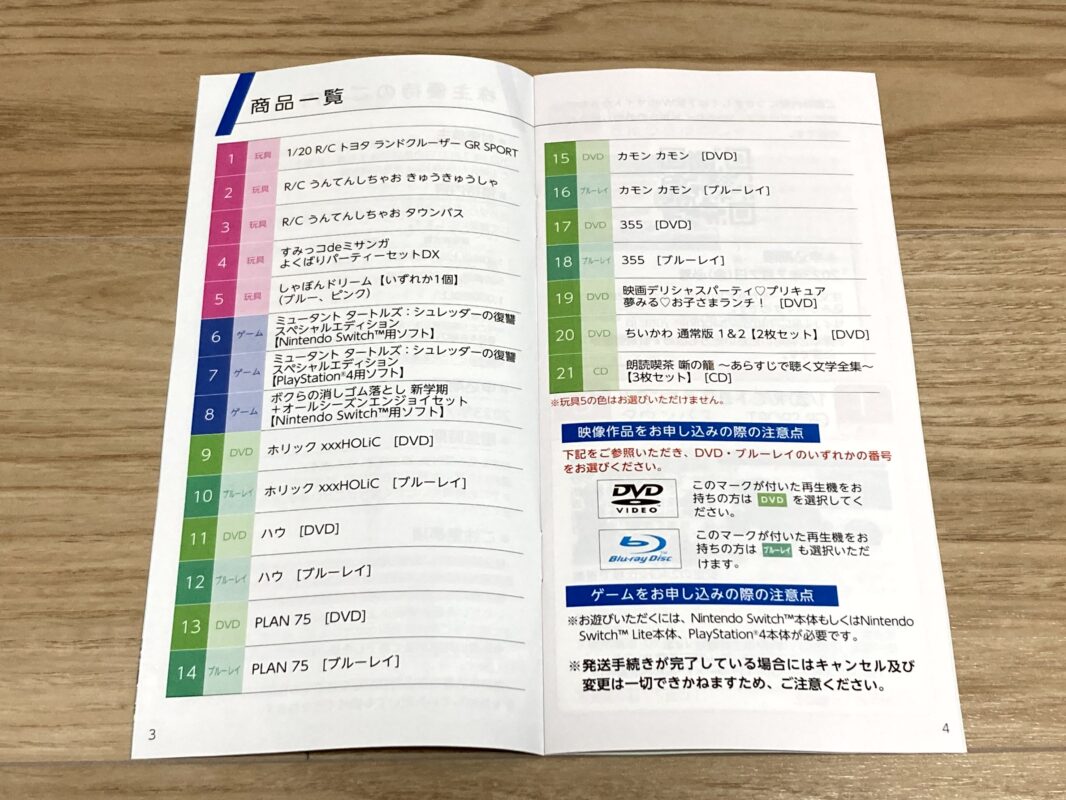 商品一覧
1 玩具 1/20 R/C トヨタ ランドクルーザー GR SPORT
2 玩具 R/C うんてんしちゃお きゅうきゅうしゃ
3 玩具 R/C うんてんしちゃお タウンバス
4 玩具 すみっコdeミサンガ
よくばりパーティーセットDX
5 玩具 しゃぼんドリーム【いずれか1個】
(ブルー、ピンク)
6 ゲーム ミュータント タートルズ:シュレッダーの復讐
スペシャルエディション
【Nintendo Switch™用ソフト】
7 ゲーム ミュータント タートルズ:シュレッダーの復讐
スペシャルエディション
【PlayStation®4用ソフト】
8 ゲーム ボクらの消しゴム落とし 新学期
+オールシーズンエンジョイセット
【Nintendo Switch™用ソフト】
9 DVD ホリック xxxHOLiC [DVD]
10 ブルーレイ ホリック xxxHOLiC [ブルーレイ]
11 DVD ハウ [DVD]
12 ブルーレイ ハウ [ブルーレイ]
13 DVD PLAN 75 [DVD]
14 ブルーレイ PLAN 75 [ブルーレイ]
3
15 DVD カモン カモン [DVD]
16 ブルーレイ カモン カモン [ブルーレイ]
17 DVD 355 [DVD]
18 ブルーレイ 355 [ブルーレイ]
19 DVD 映画デリシャスパーティ♡プリキュア
夢みる♡お子さまランチ! [DVD]
20 DVD ちいかわ 通常版 1&2【2枚セット】 [DVD]
21 CD 朗読喫茶 噺の籠 ~あらすじで聴く文学全集~
【3枚セット】 [CD]
※玩具5の色はお選びいただけません。
映像作品をお申し込みの際の注意点
下記をご参照いただき、DVD・ブルーレイのいずれかの番号
をお選びください。
DVD
VIDEO
このマークが付いた再生機をお
持ちの方は DVD を選択してく
ださい。
Blu-ray Disc
このマークが付いた再生機をお
持ちの方は ブルーレイ も選択いただ
けます。
ゲームをお申し込みの際の注意点
※お遊びいただくには、Nintendo Switch™本体もしくはNintendo
Switch™ Lite本体、PlayStation®4本体が必要です。
※発送手続きが完了している場合にはキャンセル及び
変更は一切できかねますため、ご注意ください。
4